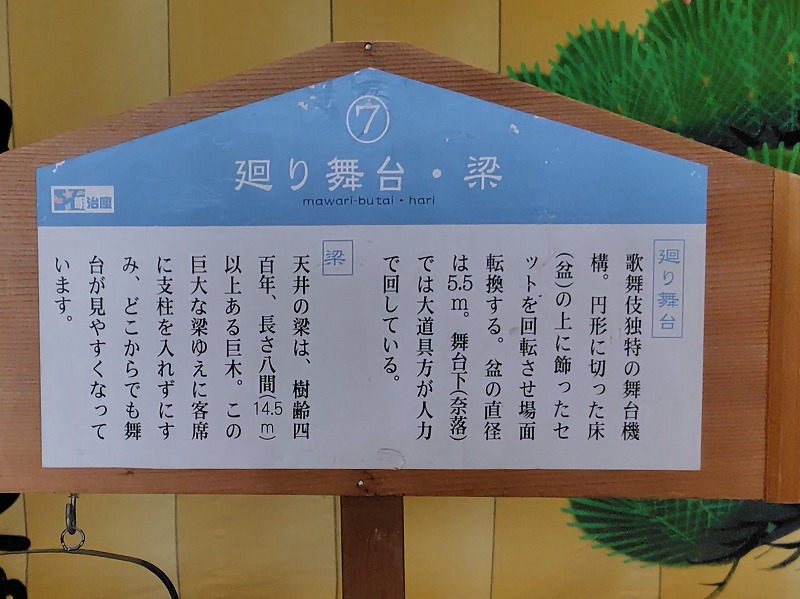 ⑦
廻り舞台・梁
mawari-butai・hari
明治座
廻り舞台
歌舞伎独特の舞台機
構。円形に切った床
(盆)の上に飾ったセ
ットを回転させ場面
転換する。盆の直径
は5.5m。舞台下(奈落)
では大道具方が人力
で回している。
梁
天井の梁は、樹齢四
百年、長さ八間(14.5m)
以上ある巨木。この
巨大な梁ゆえに客席
に支柱を入れずにす
み、どこからでも舞
台が見やすくなって
います。